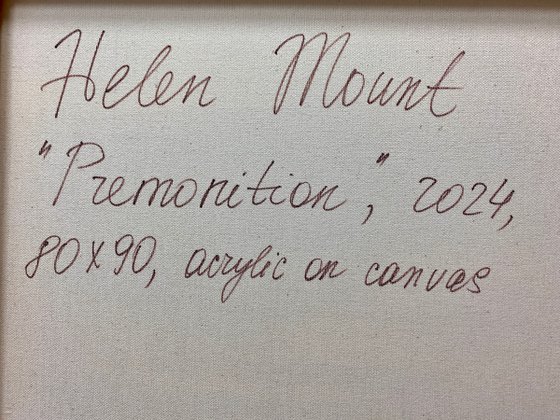 Helen Mount
"Premonition", 2024,
80x90, acrylic on canvas